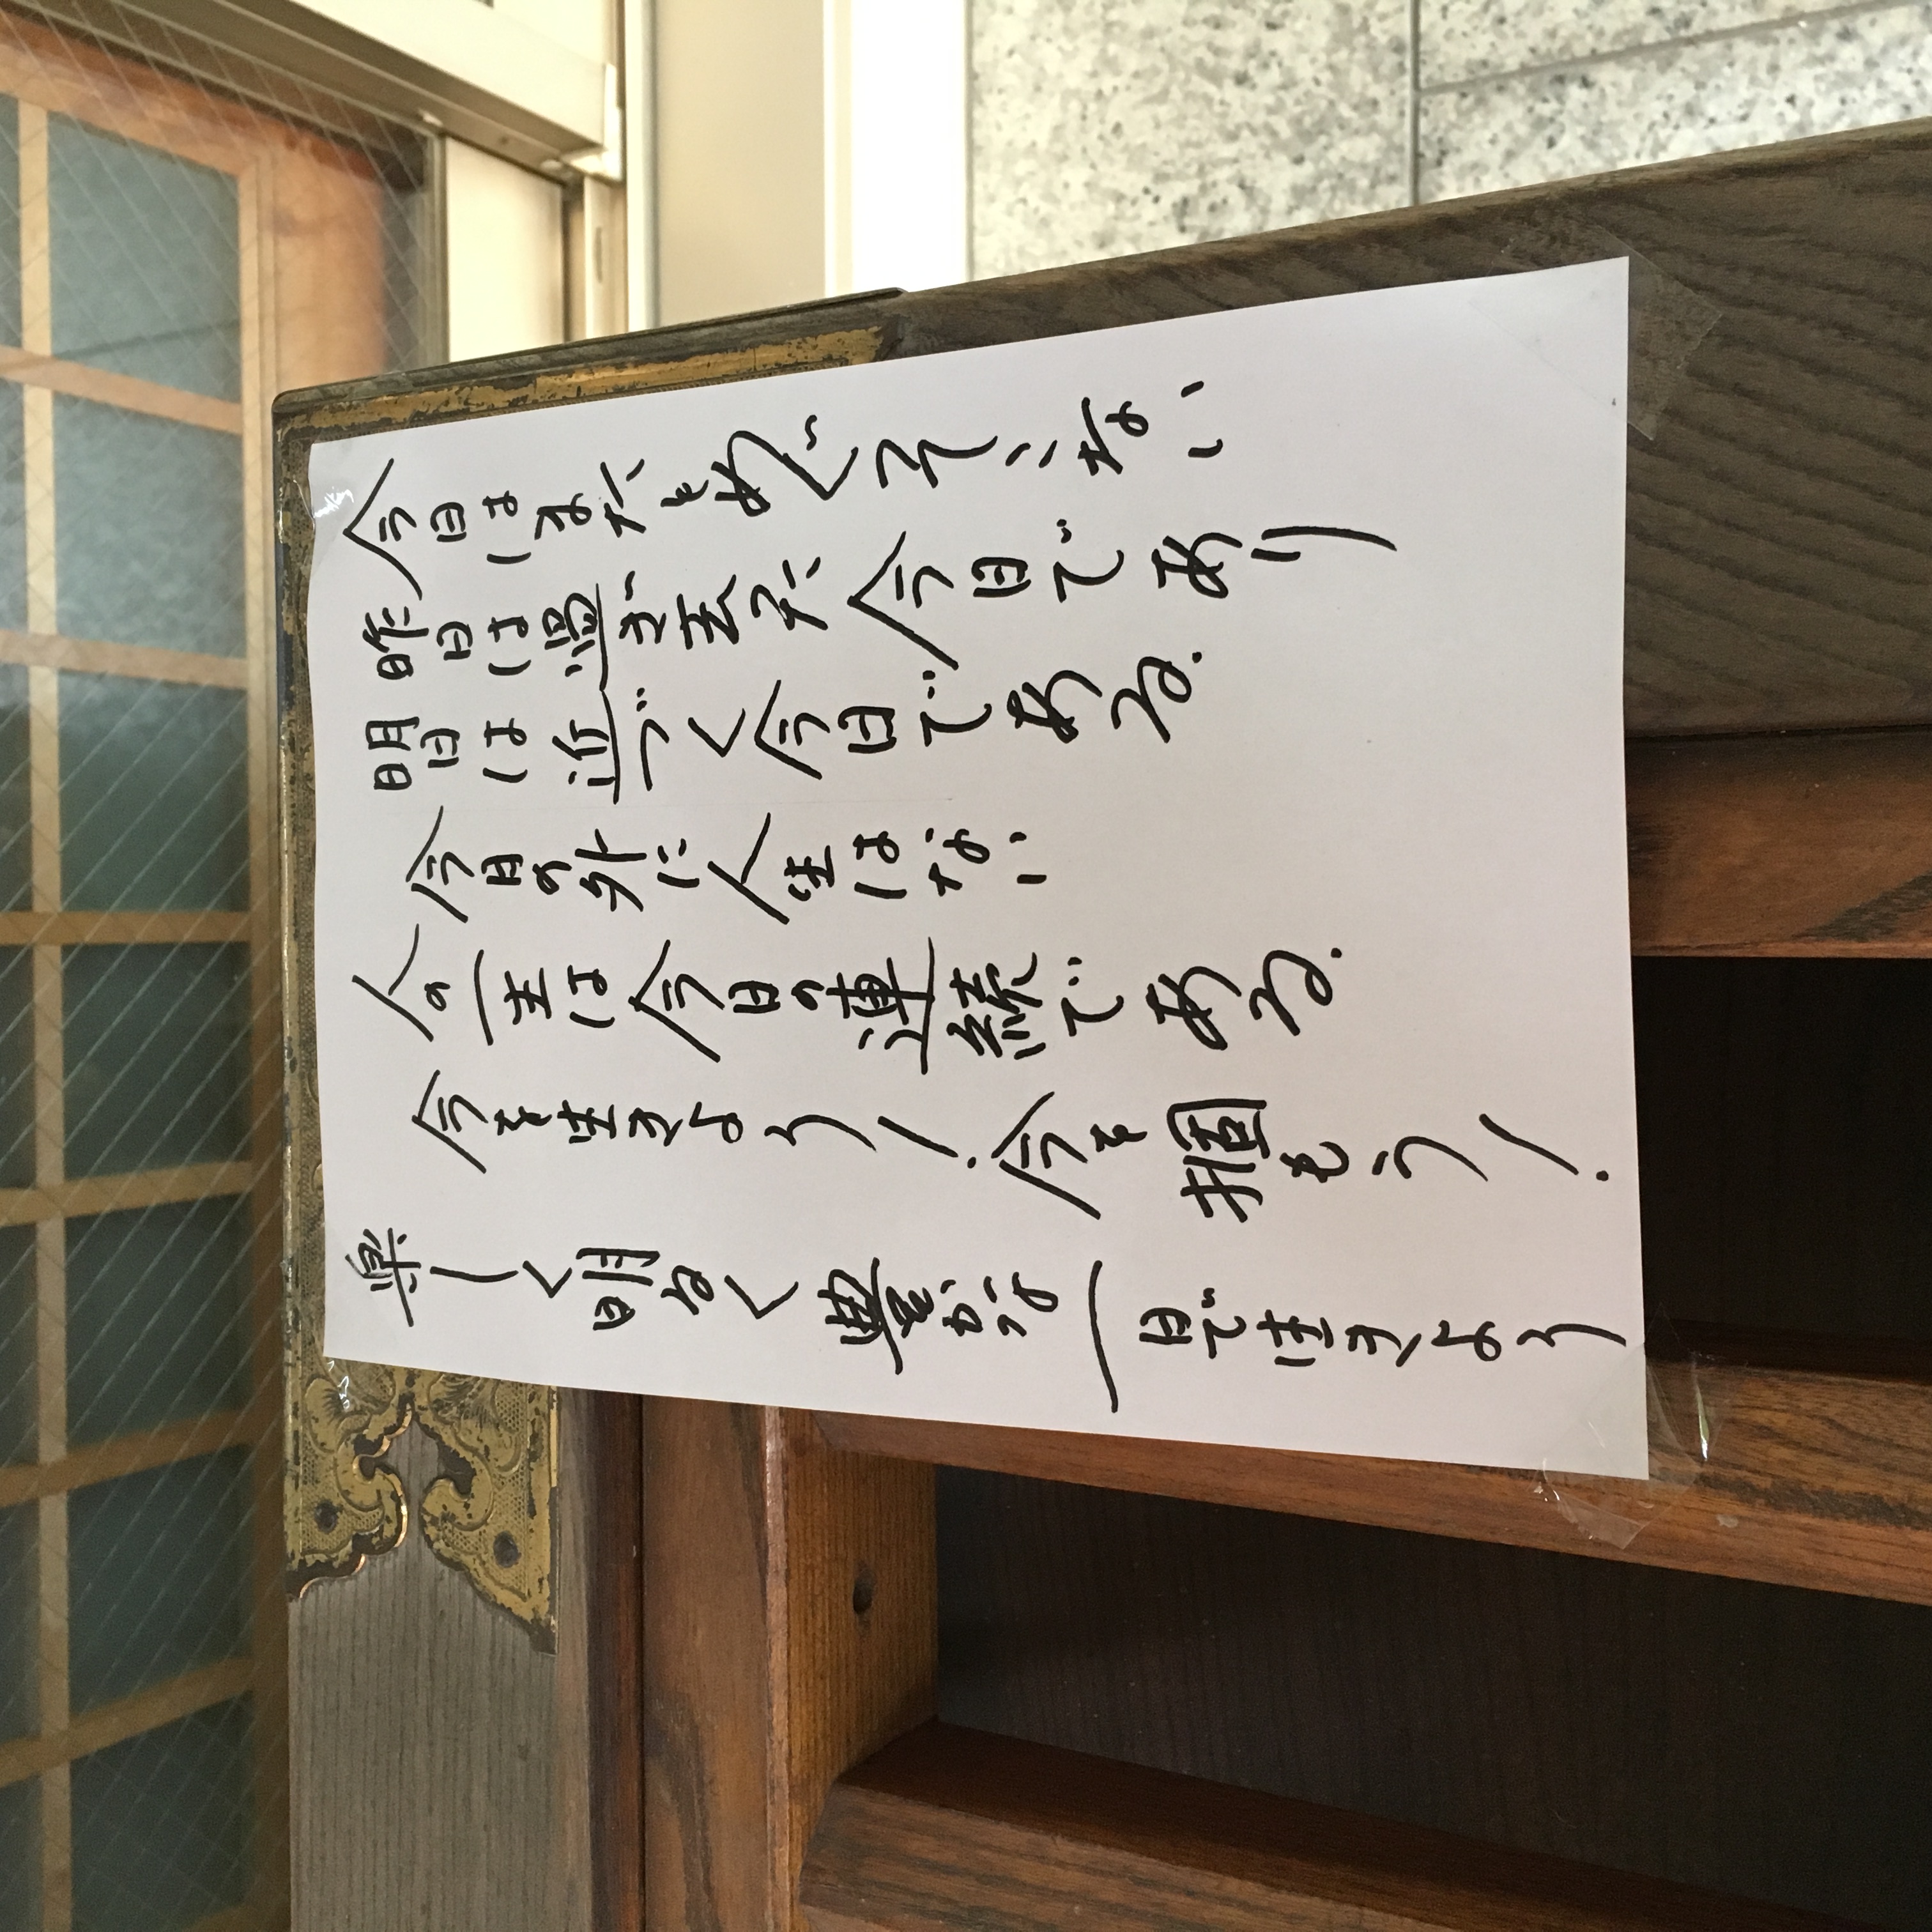 今日はまたとめぐってこない
昨日は過ぎ去った今日であり
明日は近づく今日である
今日の外に人生はない
人の一生は今日の連続である
今を生きよう！今を掴もう！
楽しく明るく豊かな一日で生きよう